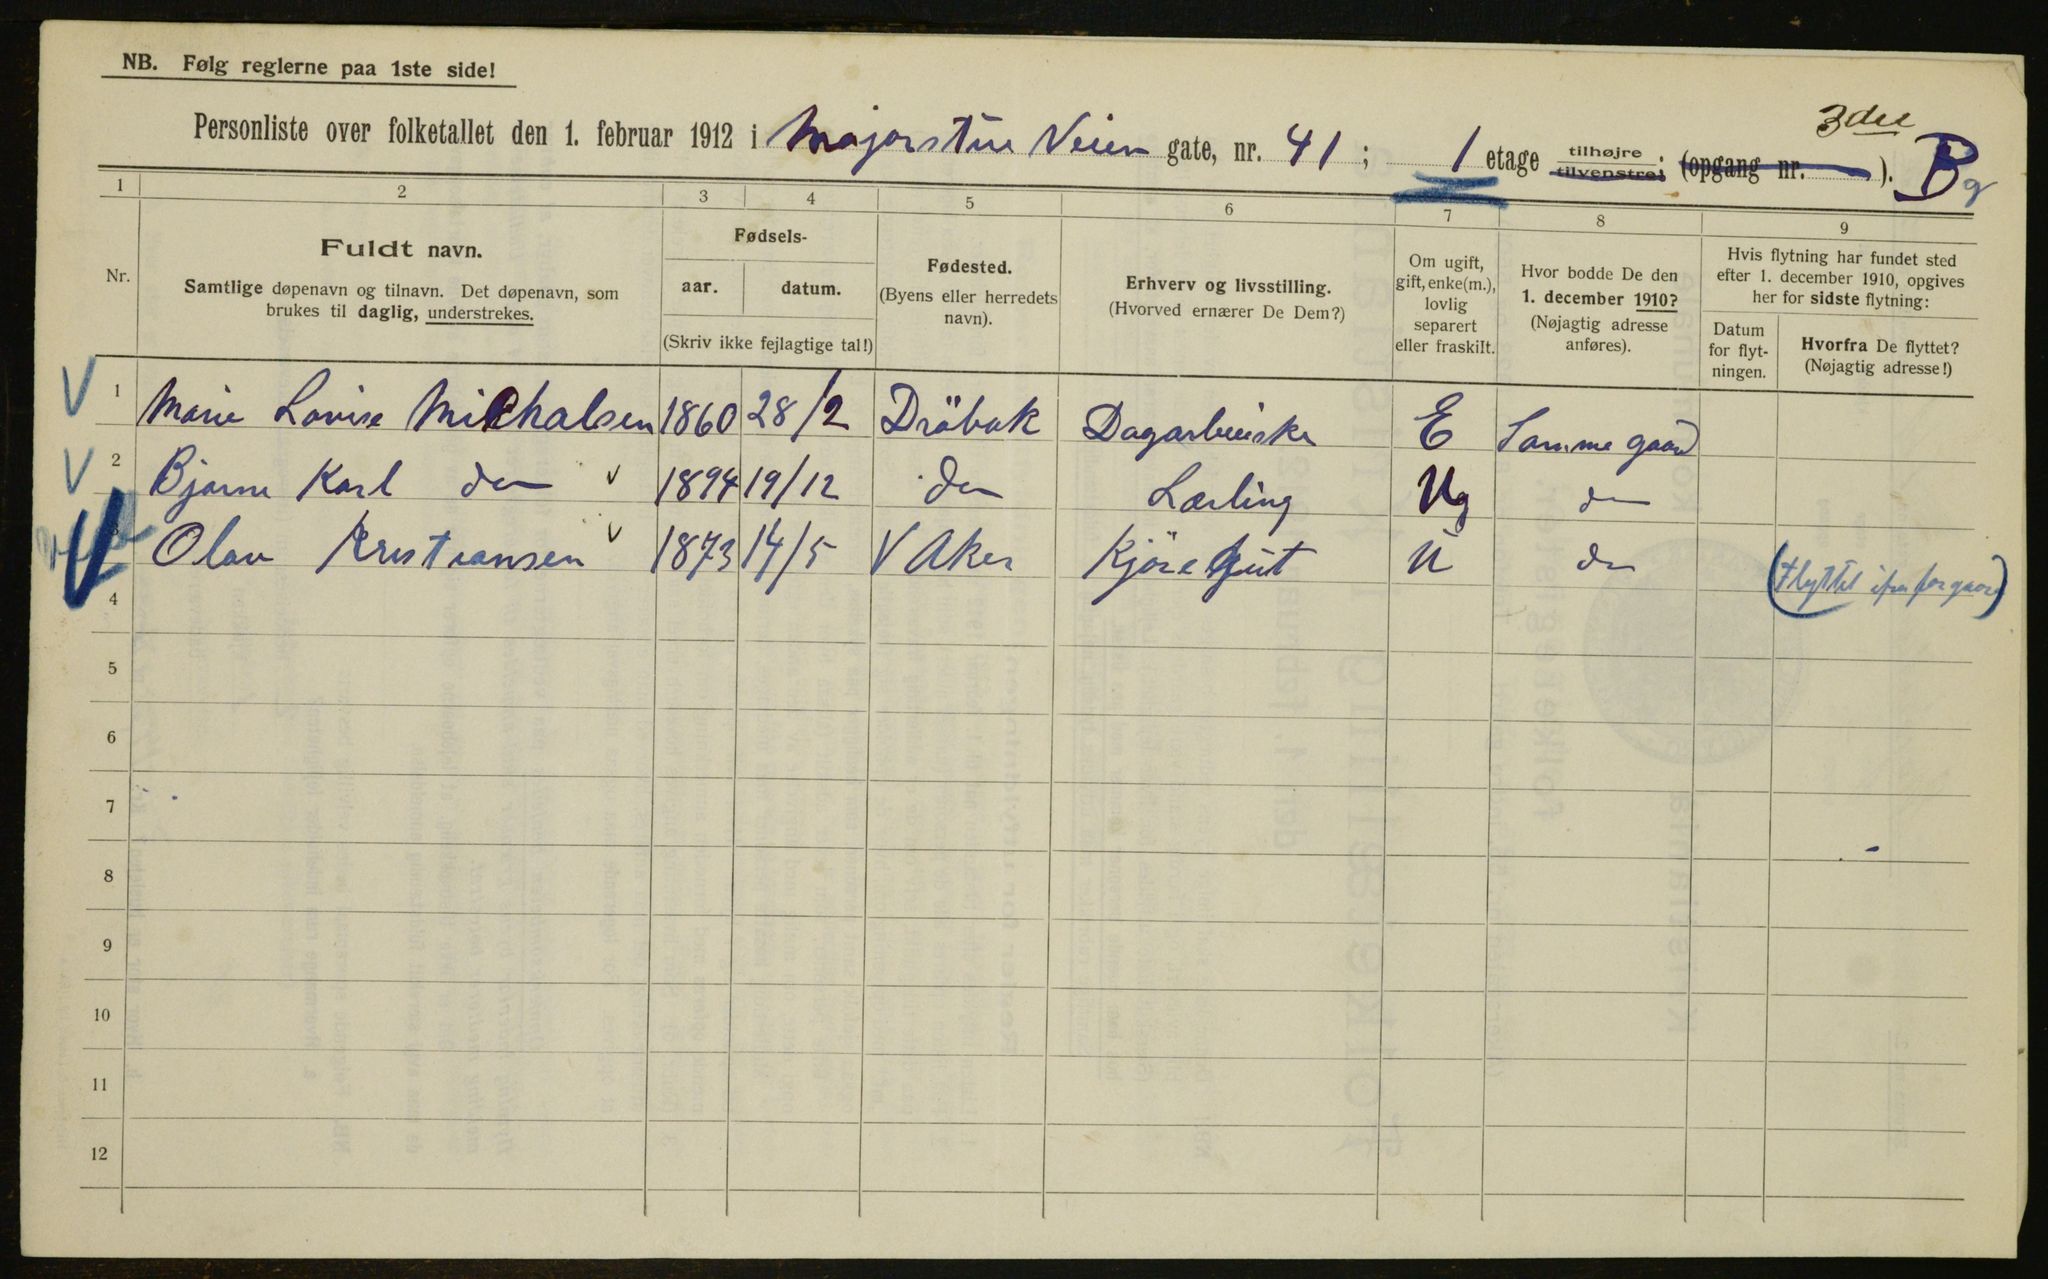 NB. Følg reglerne paa 1ste side!
3die
Personliste over folketallet den 1. februar 1912 i Majorstue Veien gate, nr. 41; 1 etage tilhøjre tilvenstre; (opgang nr. ). B
1 2 3 4 5 6 7 8 9
Nr.
Fuldt navn.
Samtlige døpenavn og tilnavn. Det døpenavn, som
brukes til daglig, understrekes.
Fødsels-
aar. datum.
(Skriv ikke fejlagtige tal!)
Fødested.
(Byens eller herredets
navn).
Erhverv og livsstilling.
(Hvorved ernærer De Dem?)
Om ugift,
gift, enke(m.),
lovlig
separert
eller fraskilt.
Hvor bodde De den
1. december 1910?
(Nøjagtig adresse
anføres).
Hvis flytning har fundet sted
efter 1. december 1910, opgives
her for sidste flytning:
Datum
for flyt-
ningen.
Hvorfra De flyttet?
(Nøjagtig adresse!)
V 1 Marie Lovise Michalsen 1860 28/2 Dröbak Dagarbeiske E Samme gaard
V 2 Bjarne Karl do v 1894 19/12 do Lærling Ug do
V 3 Olav Kristiansen v 1873 14/5 V Aker Kjöregut U do
(Flyttet ifra forgaard)
4
5
6
7
8
9
10
11
12